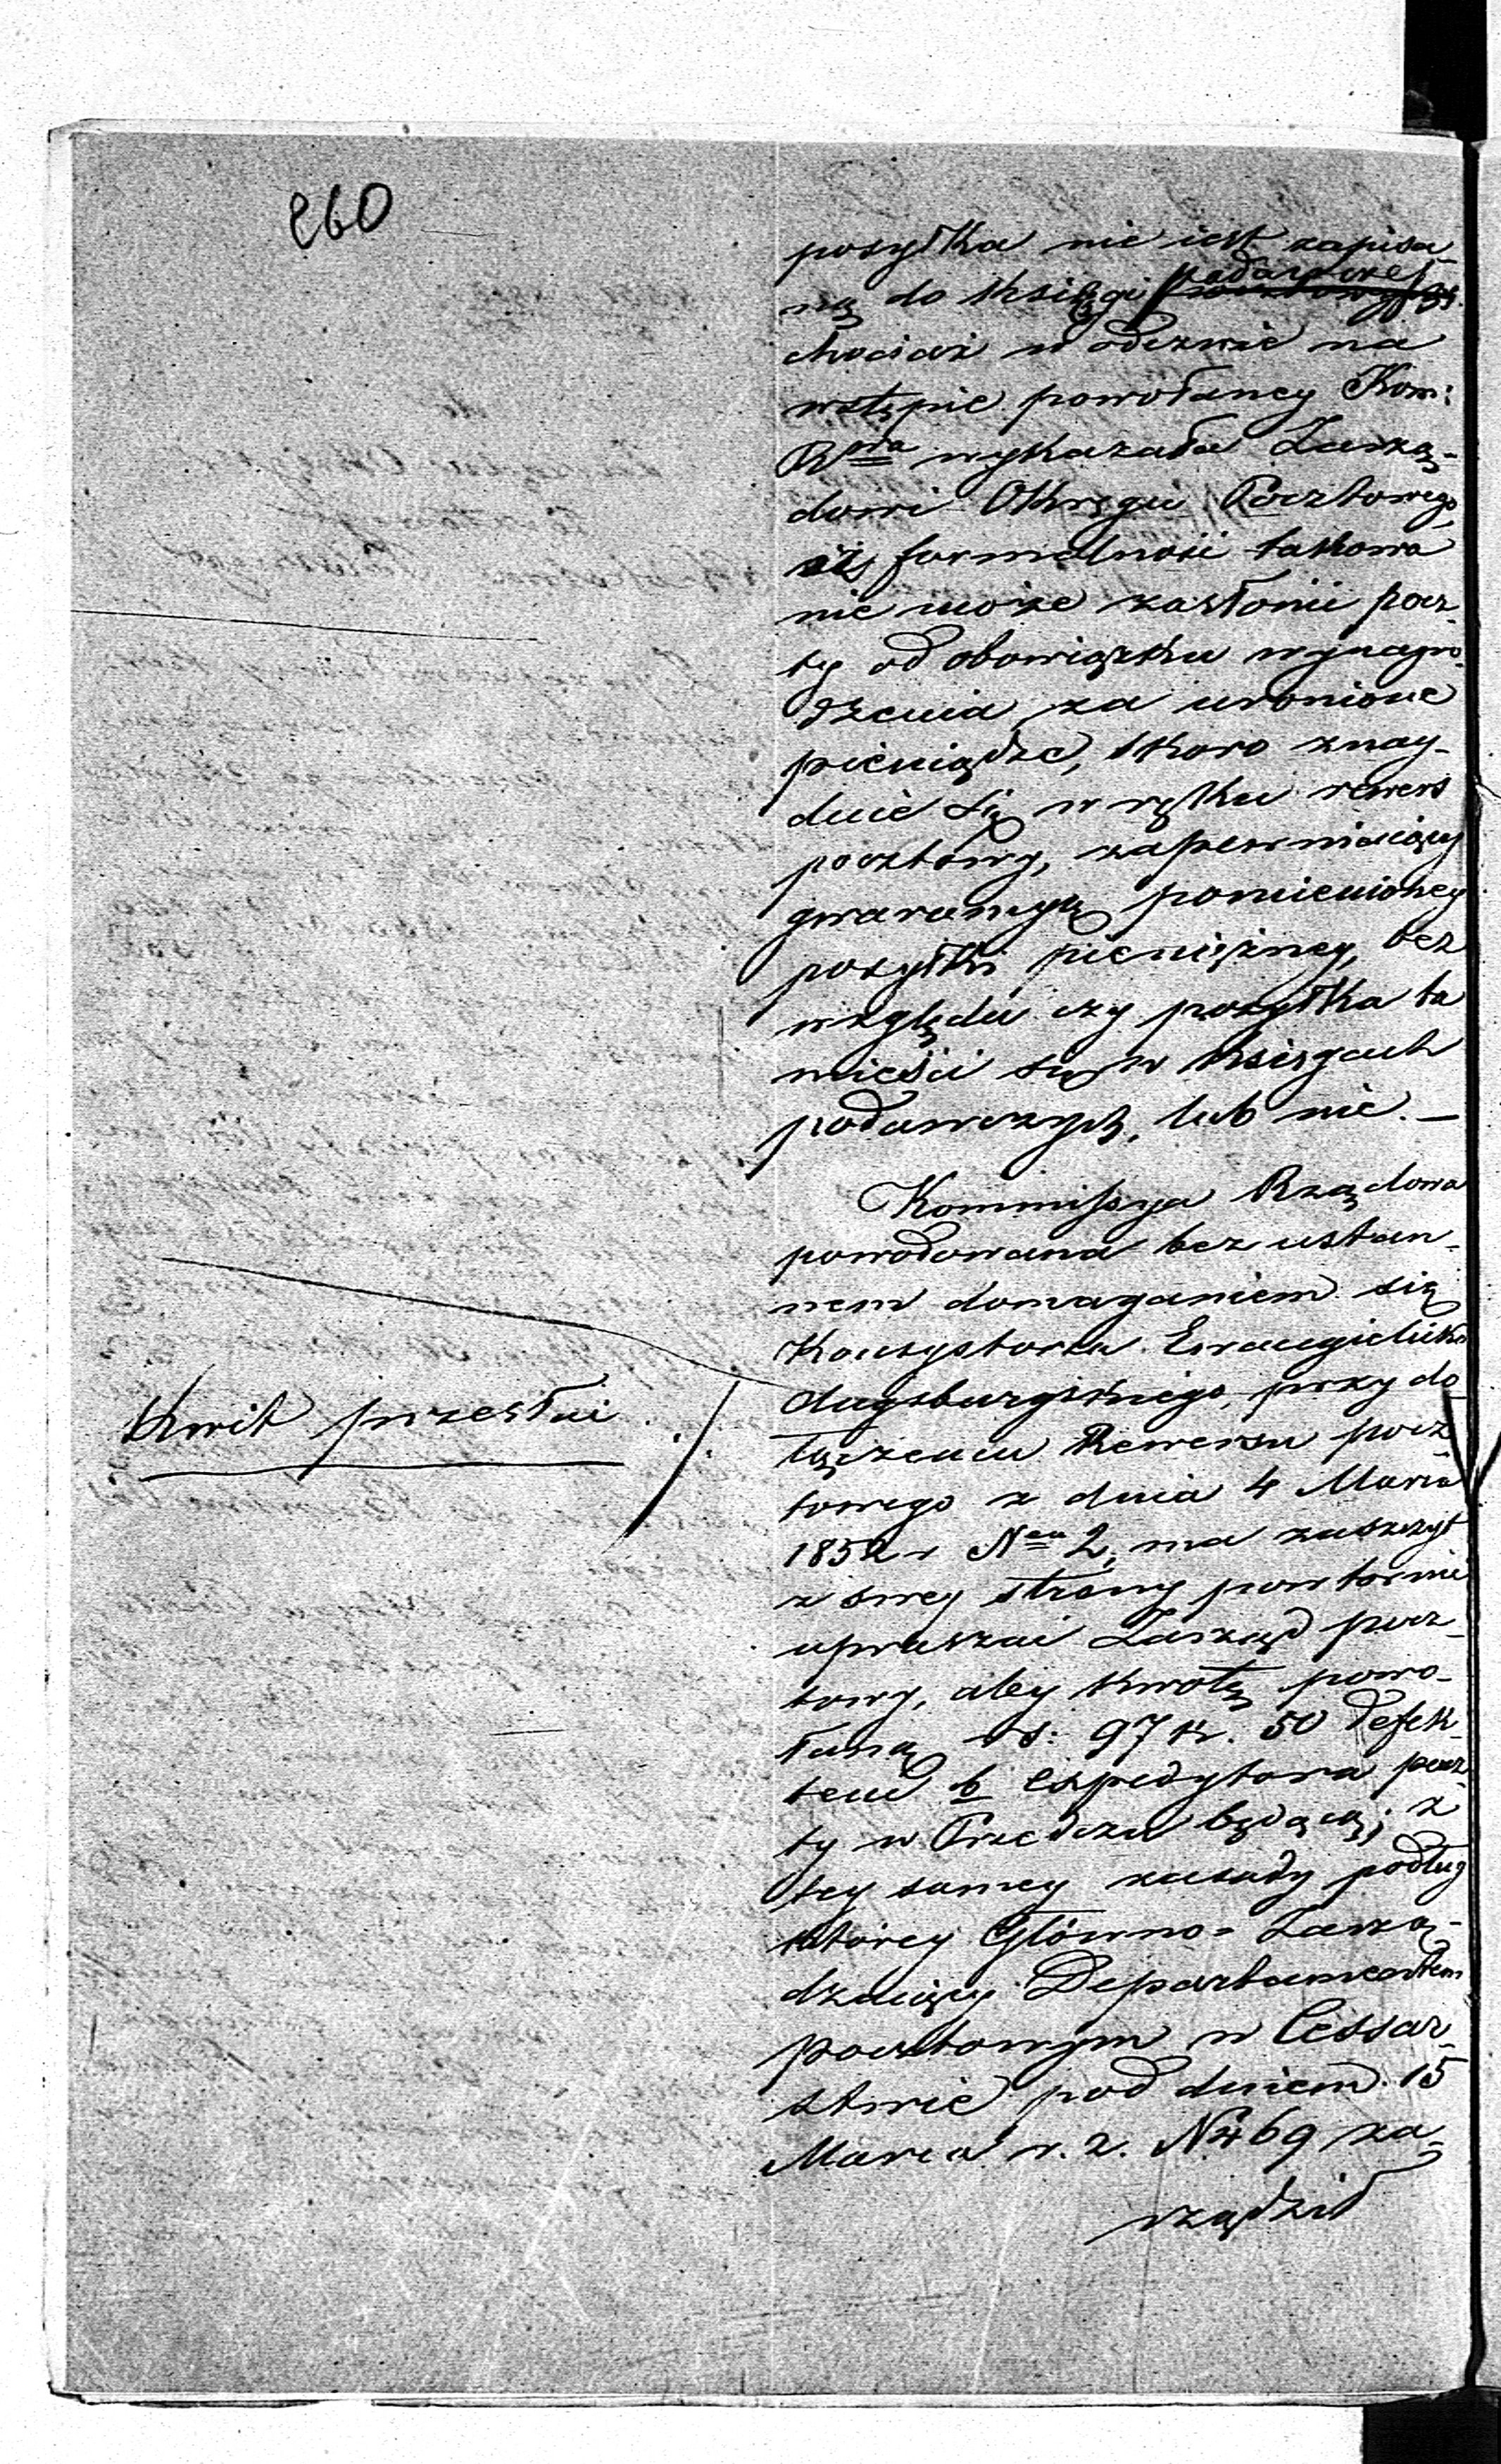 260
posyłka nie iest zapisa-
ną do Księgi podawczej
chociaż w odezwie na
wstępie powołaney Kom:
Rowa wykazała Zarzą-
dowi Okręgu Pocztowego,
iż formalność takowa
nie może zasłonić pocz-
ty od obowiązku wynagro-
dzenia za uronione
pieniądze, skoro znay-
duie się w ręku rewers
pocztowy, zapewniaiący
gwarancyą pomienioney
posyłki pieniężney, bez
względu czy posyłka ta
mieści się w Księgach
podawczych, lub nie. —
Kommissya Rządowa
powodowana bez ustan-
nem domaganiem się
Konsystorza Ewangielicko
Augsburgskiego, przy do-
łączeniu Rewersu pocz-
towego z dnia 4 Marca
1852 r Nru 2, ma zaszczyt
z swey strony powtornie
upraszać Zarząd pocz-
towy, aby kwotę powo-
łaną rs: 97 k. 50 defek-
tem b Expedytora pocz-
ty w Przedczu będącą; z
tey samey zasady podług
którey Główno-Zarzą-
dzaiący Departamentem
pocztowym w Cessar-
stwie pod dniem 15
Marca r. z. N 469 za-
rządził
Kwit przesłać